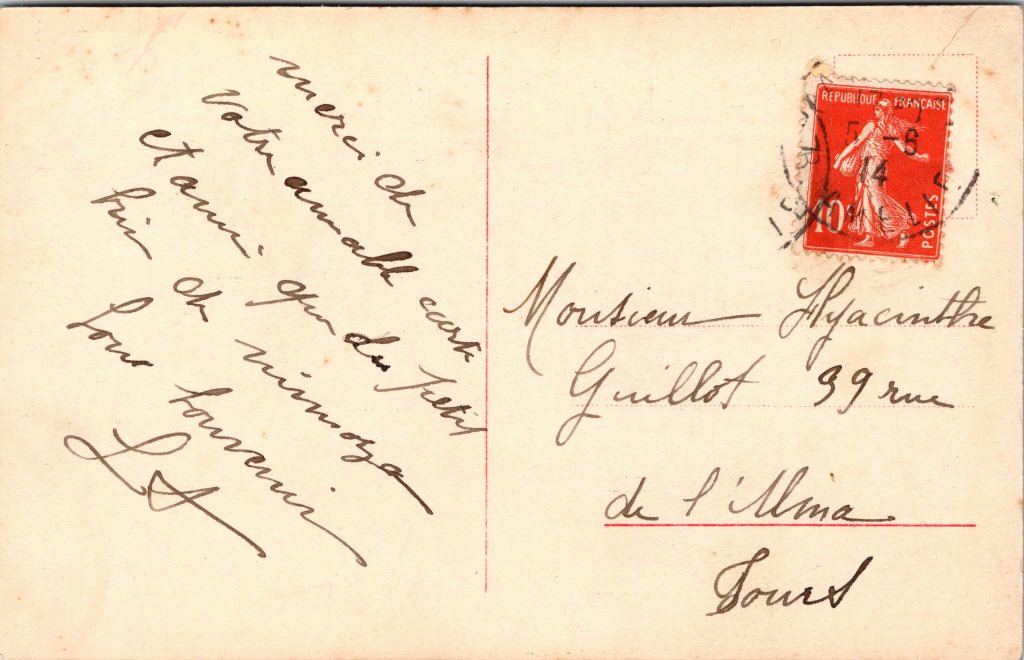 merci de
votre aimable carte
et ainsi que du petit
brin de mimosa
bon souvenir
REPUBLIQUE FRANÇAISE
5 -6
14
10
POSTES
Monsieur Hyacinthe
Guillot 39 rue
de l'Alma
Tours